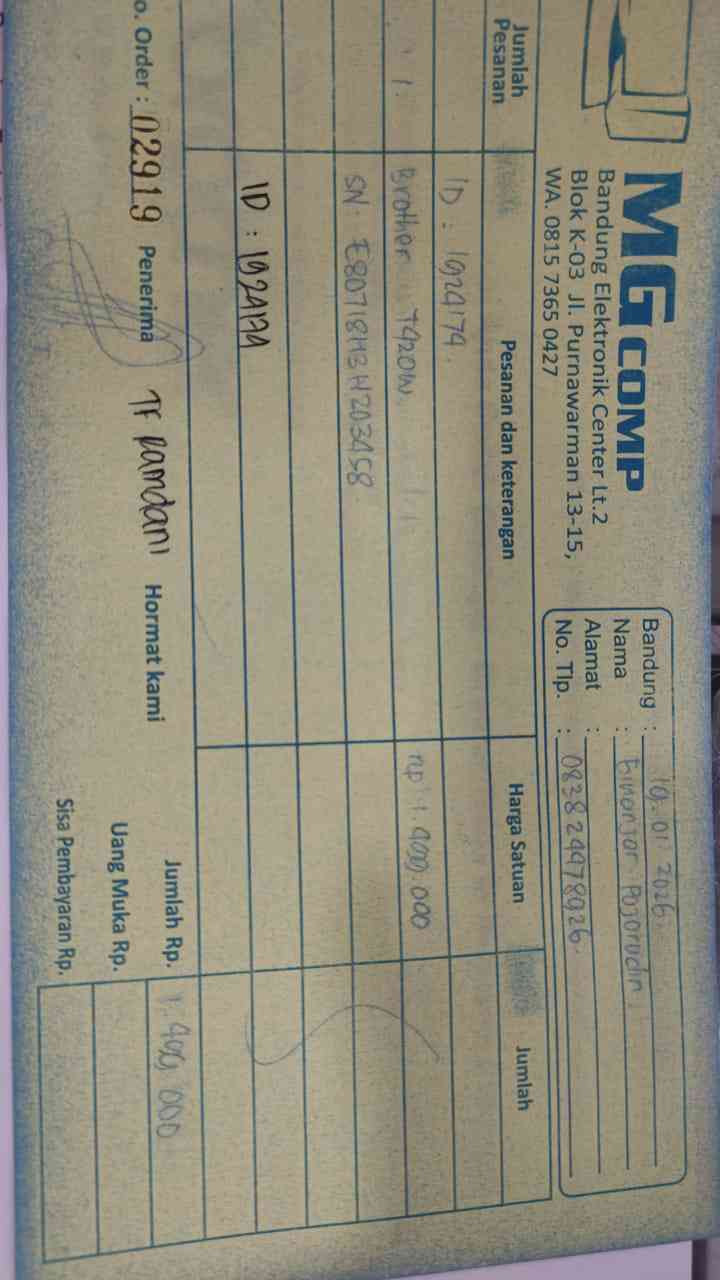 MG COMP
Bandung Elektronik Center Lt.2
Blok K-03 Jl. Purnawarman 13-15,
WA. 0815 7365 0427
Bandung : 19-01 2026
Nama :
Alamat :
No. Tlp. : 083824978926
Jumlah Pesanan Pesanan dan keterangan Harga Satuan Jumlah
ID : 1924174
1. Brother T420W Rp 1.400,000
SN. E80718H3H203458
ID : 1924174
o. Order : 02919 Penerima TF Ramdani Hormat kami
Jumlah Rp. 1.400,000
Uang Muka Rp.
Sisa Pembayaran Rp.